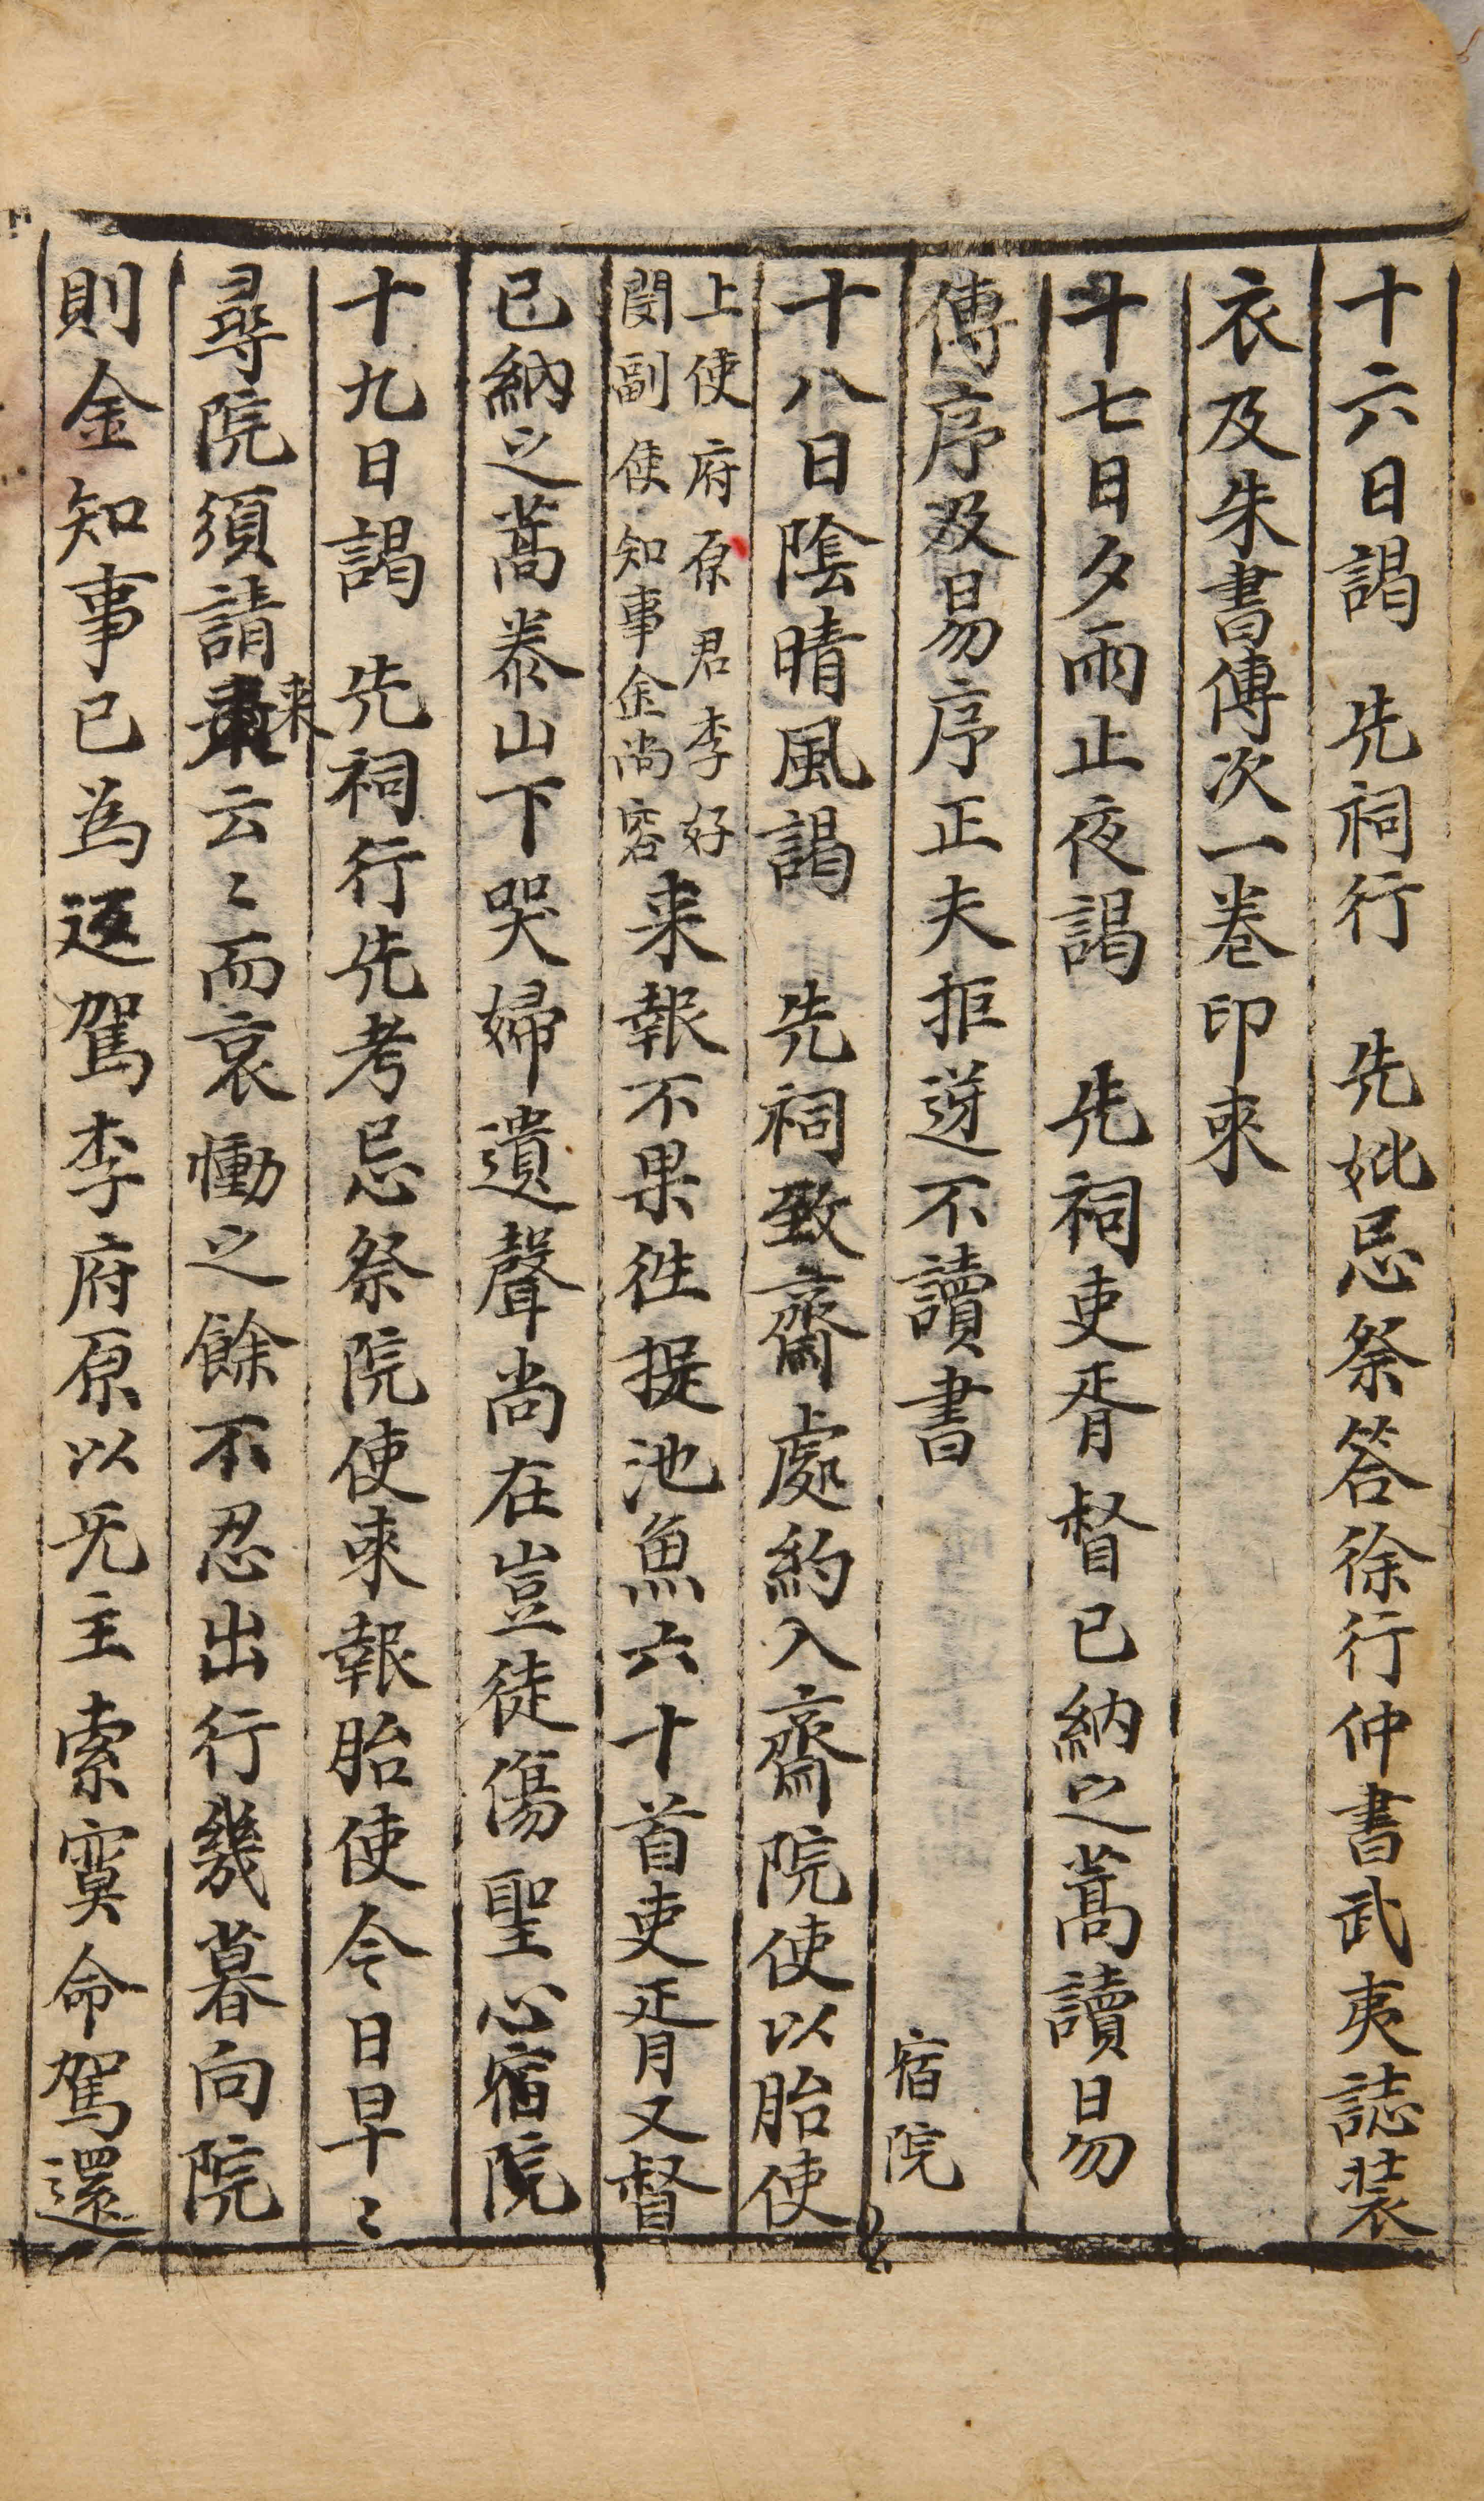 十六日謁 先祠行 先妣忌祭答徐行仲書武夷誌装
衣及朱書傳次一卷印來
十七日夕雨止夜謁 先祠吏胥督已納之蒿讀易
傳序及易序正夫拒逆不讀書 宿院
十八日陰晴風謁 先祠致齋處約入齋院使以胎使
上使府原君李好
閔副使知事金尚容
来報不果徃捉池魚六十首吏胥又督
已納之蒿泰山下哭婦遺聲尚在豈徒傷聖心宿院
十九日謁 先祠行先考忌祭院使來報胎使今日早〻
尋院須請来云〻而哀慟之餘不忍出行幾暮向院
則金知事已為返駕李府原以旡主索寞命駕還